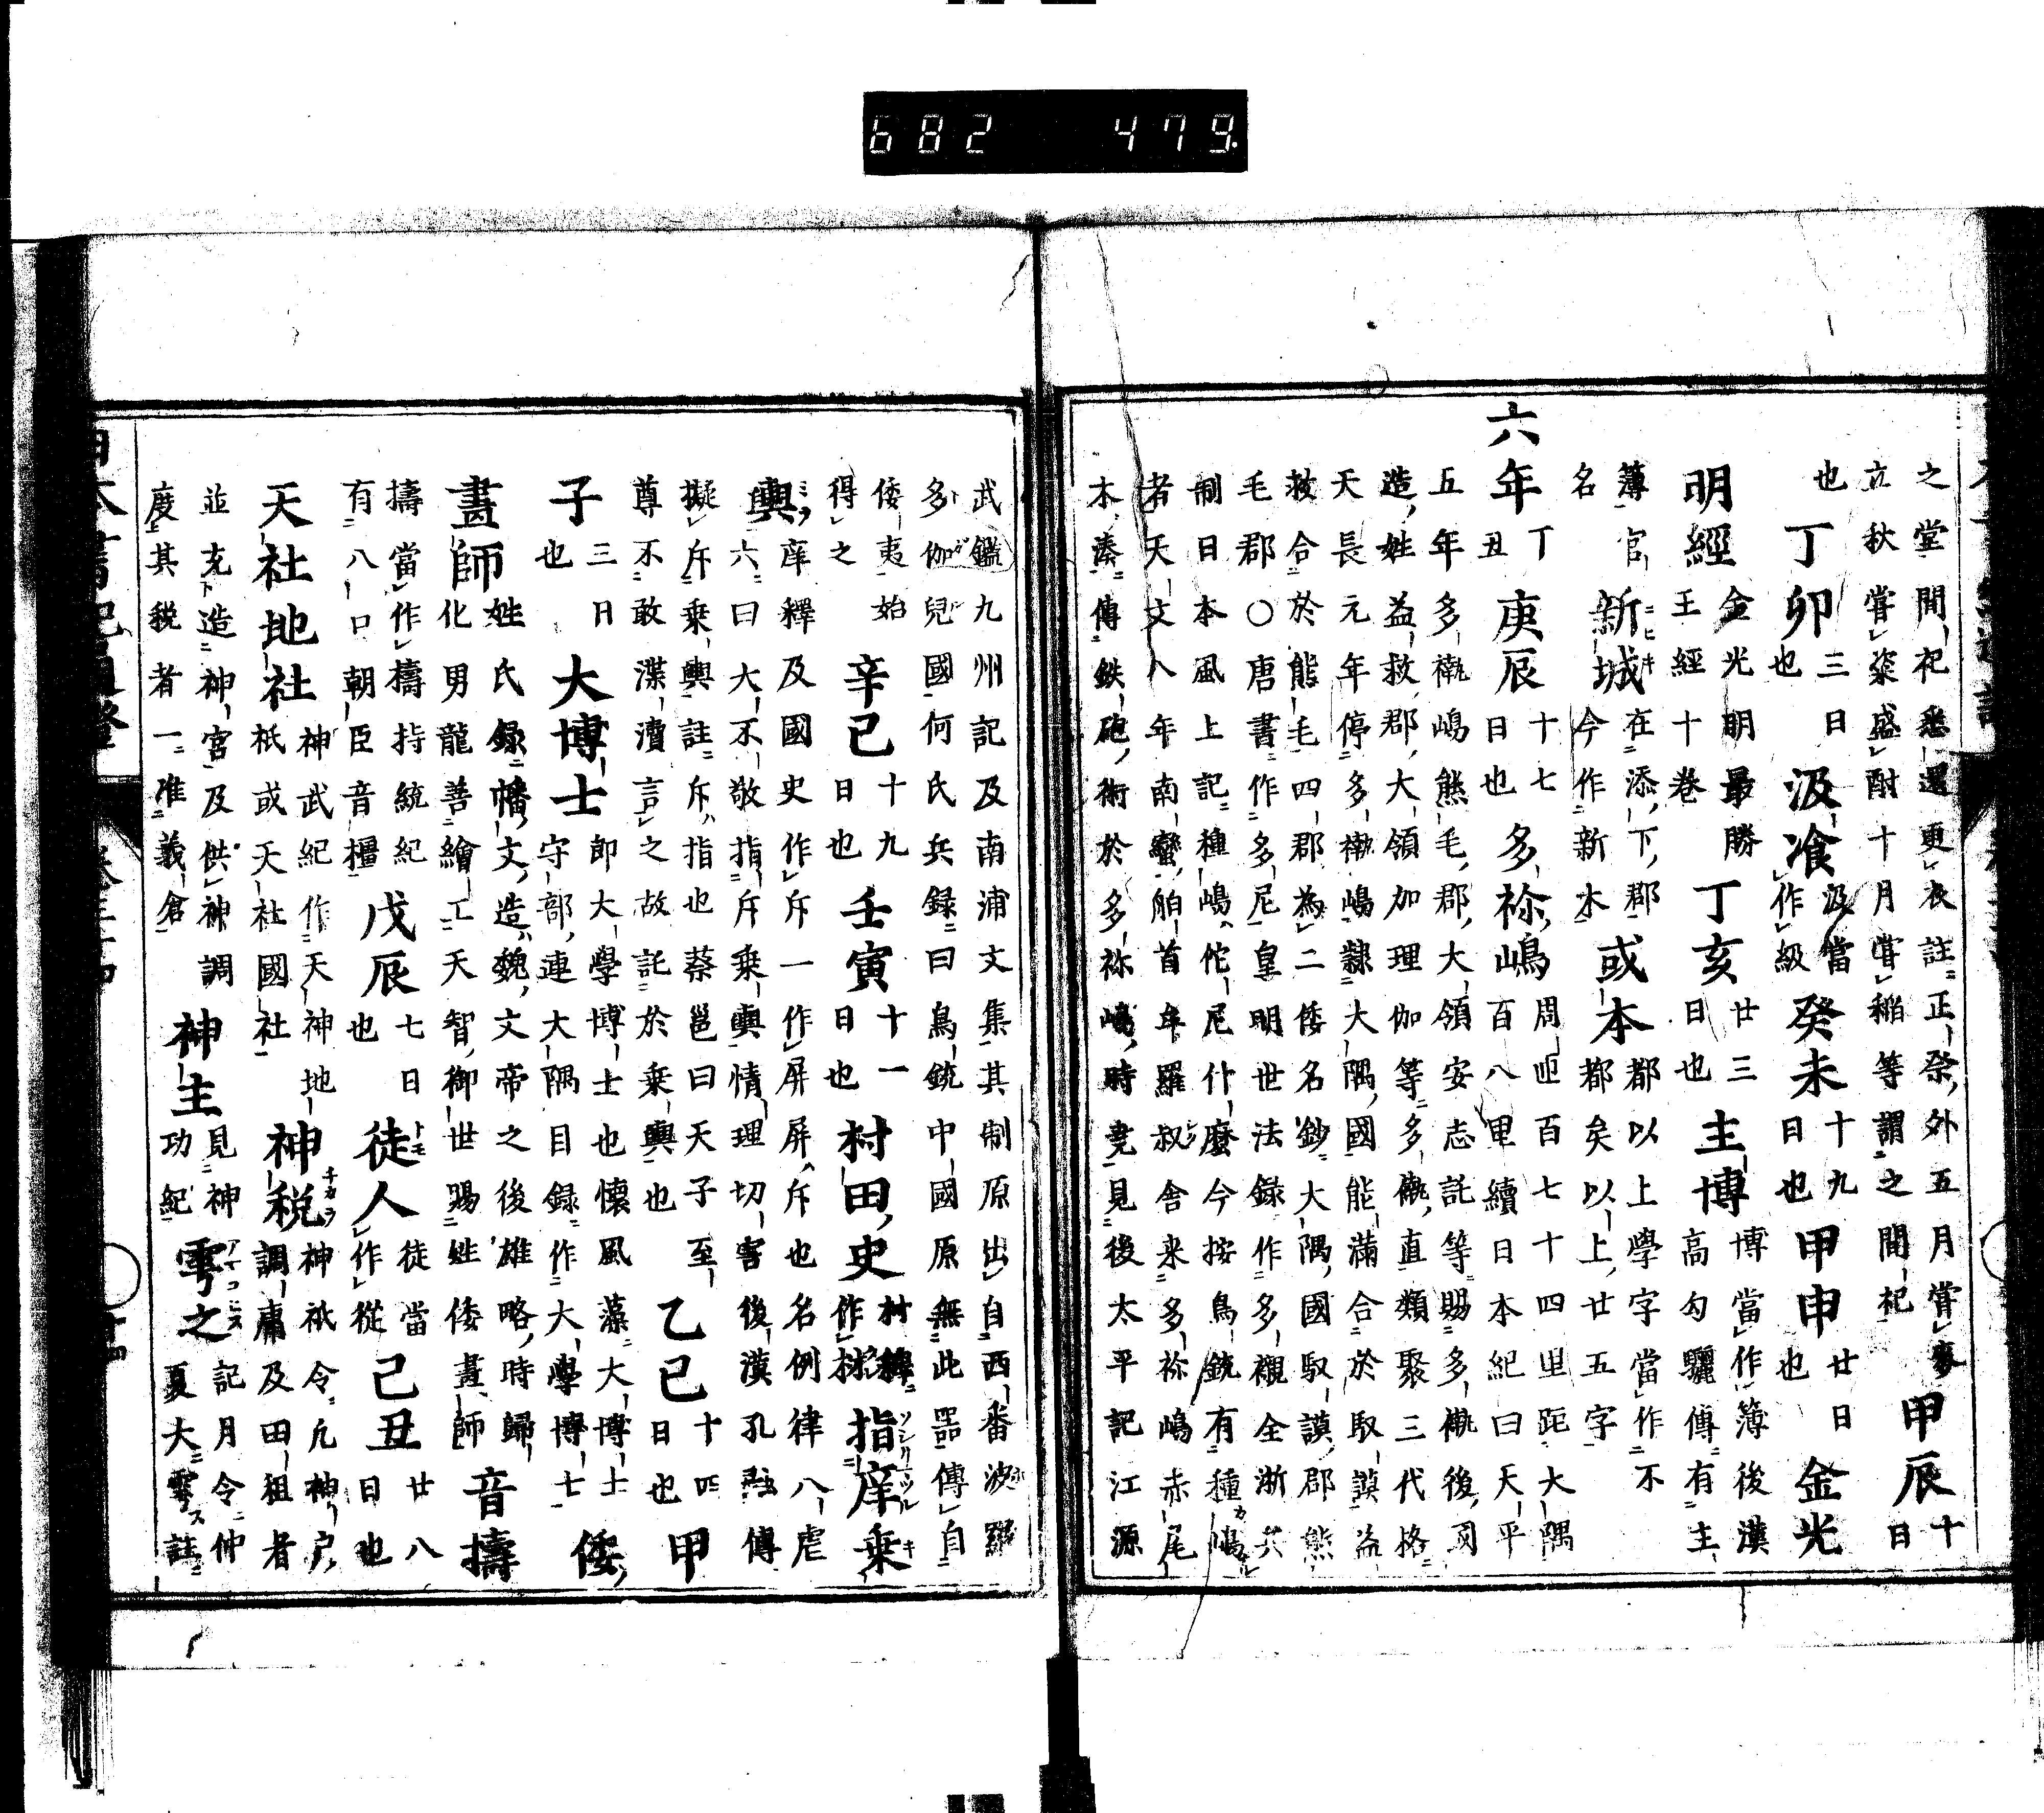 682 479.
之堂間祀悉還更衣註正祭外五月嘗麥 甲辰十日
立秋嘗粢盛酎十月嘗稲等謂之間祀
也 丁卯三日也 汲飡汲當作級 癸未十九日也 甲申廿日也 金光
明經金光明最勝王經十卷 丁亥廿三日也 主博博當作簿後漢高勾驪傳有主
簿官 新城在添下郡今作新木 或本都以上學字當作不都矣以上廿五字
名
六年丁丑 庚辰十七日也 多祢嶋周迊百七十四里距大隅百八里續日本紀曰天平
五年多褹嶋熊毛郡大領安志託等賜多褹後國
造姓益救郡大領加理伽等多褹直類聚三代格
天長元年停多褹嶋隷大隅國能滿合於馭謨益
救合於熊毛四郡為二倭名鈔大隅國馭謨郡熊
毛郡○唐書作多尼皇明世法録作多襯全浙兵
制日本風上記種嶋佗尼什麼今按鳥銃有種嶋
者天文八年南蠻舶首牟羅叔舎来多祢嶋赤尾
木湊傳鉄砲術於多祢嶋時尭見後太平記江源
武鑑九州記及南浦文集其制原出自西番波羅
多伽兒國何氏兵録曰鳥銃中國原無此器傳自
倭夷始得之 辛巳十九日也 壬寅十一日也 村田史村韓作材 指庠乗
輿庠釋及國史作斥一作屏屏斥也名例律八虐
六曰大不敬指斥乗輿情理切害後漢孔融傳
擬斥乗輿註斥指也蔡邕曰天子至
尊不敢渫瀆言之故託於乗輿也 乙巳十四日也 甲
子三日也 大博士即大學博士也懐風藻大博士守部連大隅目録作大學博士 倭
畫師姓氏録幡文造魏文帝之後雄略時歸化男龍善繪工天智御世賜姓倭畫師 音擣
擣當作擣持統紀有八口朝臣音橿 戊辰七日也 徒人徒當作從 己丑廿八日也
天社地社神武紀作天神地祇或天社國社 神税神祇令凢神戸調庸及田租者
並充造神宮及供神調度其税者一准義倉 神主見神功紀 雩之記月令仲夏大雩註
日本書紀通證